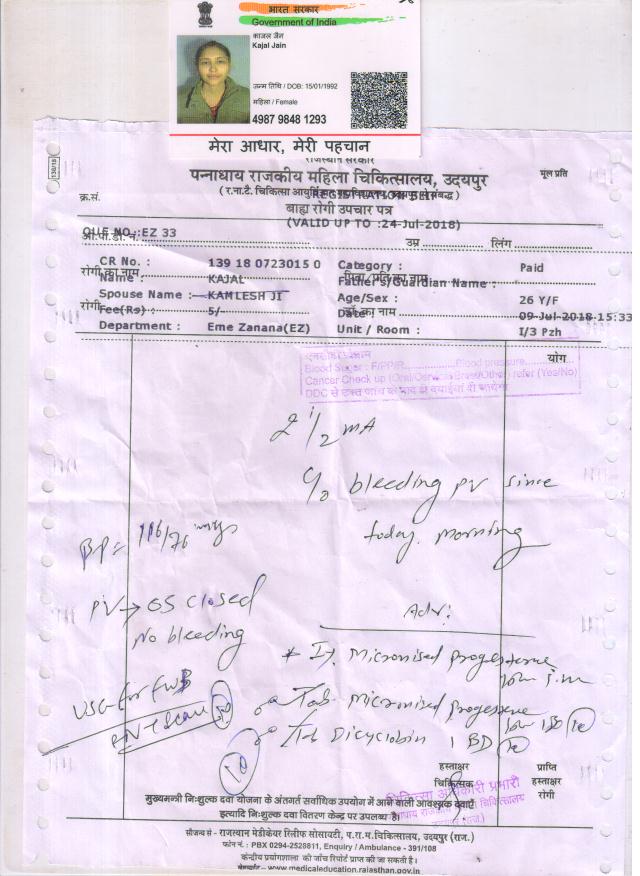 भारत सरकार
Government of India
काजल जैन
Kajal Jain
जन्म तिथि / DOB: 15/01/1992
महिला / Female
4987 9848 1293
मेरा आधार, मेरी पहचान
राजस्थान सरकार
पन्नाधाय राजकीय महिला चिकित्सालय, उदयपुर
मूल प्रति
क्र.सं.
बाह्य रोगी उपचार पत्र
(VALID UP TO :24-Jul-2018)
QUE NO.:EZ 33
उम्र लिंग
CR No. : 139 18 0723015 0 Category : Paid
रोगी का नाम
Name : KAJAL Father's/Guardian Name :
Spouse Name : KAMLESH JI Age/Sex : 26 Y/F
Fee(Rs) : 5/- 09-Jul-2018-15:33
Department : Eme Zanana(EZ) Unit / Room : I/3 Pzh
योग
Blood Sugar : F/PP/R Blood pressure
Cancer Check up (Oral/ /Other) refer (Yes/No)
2 1/2 mA
c/o bleeding PV since
today morning
BP= 116/76
PV→ OS closed
No bleeding
Adv:
* Inj. Micronised progesterone
i.m
USG for FWB
Tab Micronised progesterone
BD 10
Tab Dicyclobin 1 BD 10
हस्ताक्षर प्राप्ति
चिकित्सक हस्ताक्षर
रोगी
चिकित्सा अधिकारी प्रभारी
मुख्यमन्त्री निःशुल्क दवा योजना के अंतर्गत सर्वाधिक उपयोग में आने वाली आवश्यक दवाएँ
इत्यादि निःशुल्क दवा वितरण केन्द्र पर उपलब्ध है।
सौजन्य से - राजस्थान मेडीकेयर रिलीफ सोसायटी, प.रा.म.चिकित्सालय, उदयपुर (राज.)
फोन नं. : PBX 0294-2528811, Enquiry / Ambulance - 391/108
केन्द्रीय प्रयोगशाला को जाँच रिपोर्ट प्राप्त की जा सकती है।
वेबसाईट- www.medicaleducation.rajasthan.gov.in